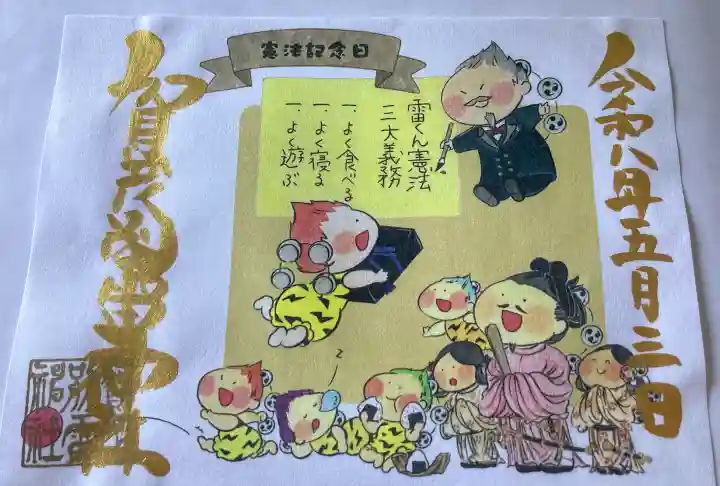 憲法記念日
令和八年五月三日
雷くん憲法
三大義務
一、よく食べる
一、よく寝る
一、よく遊ぶ
z
賀茂別雷神社